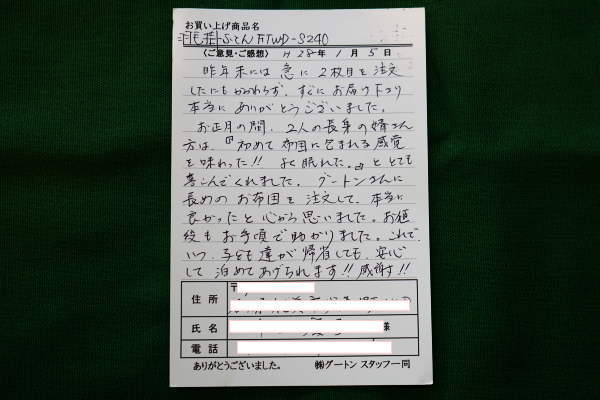 お買い上げ商品名
洗濯ふとん FTWD-S240
〈ご意見・ご感想〉 H 28年 1月 5日
昨年末には急に2枚目を注文
したにもかかわらず、すぐにお届け下さり
本当にありがとうございました。
お正月の間、2人の長身の婿さん
方は、『初めて布団に包まれる感覚
を味わった!! よく眠れた。』ととても
喜こんでくれました。グートンさんに
長めのお布団を注文して、本当に
良かったと心から思いました。お値
段もお手頃で助かりました。これで、
いつ、子ども達が帰省しても、安心
して泊めてあげられます!! 感謝!!
住所 〒
氏名 様
電話
ありがとうございました。 ㈱グートン スタッフ一同